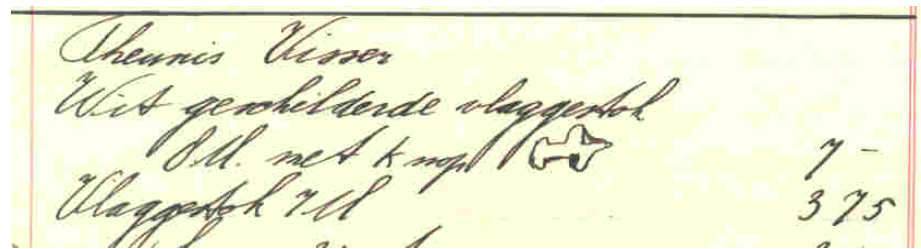 Theunis Visser
Wit geschilderde vlaggestok
8 M. met knop 7 -
Vlaggestok 7 M 3 75